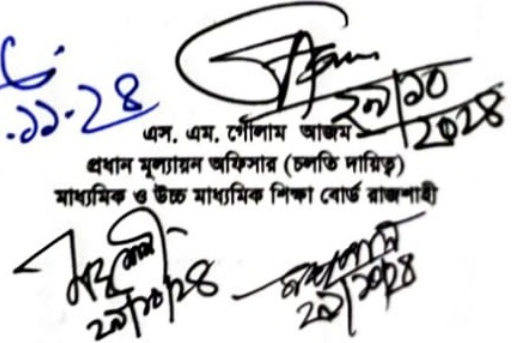 .১১.২৪
২৯/১০
২০২৪
এস. এম. গোলাম আজম
প্রধান মূল্যায়ন অফিসার (চলতি দায়িত্ব)
মাধ্যমিক ও উচ্চ মাধ্যমিক শিক্ষা বোর্ড রাজশাহী
২৯/১০/২৪
২৯/১০/২৪